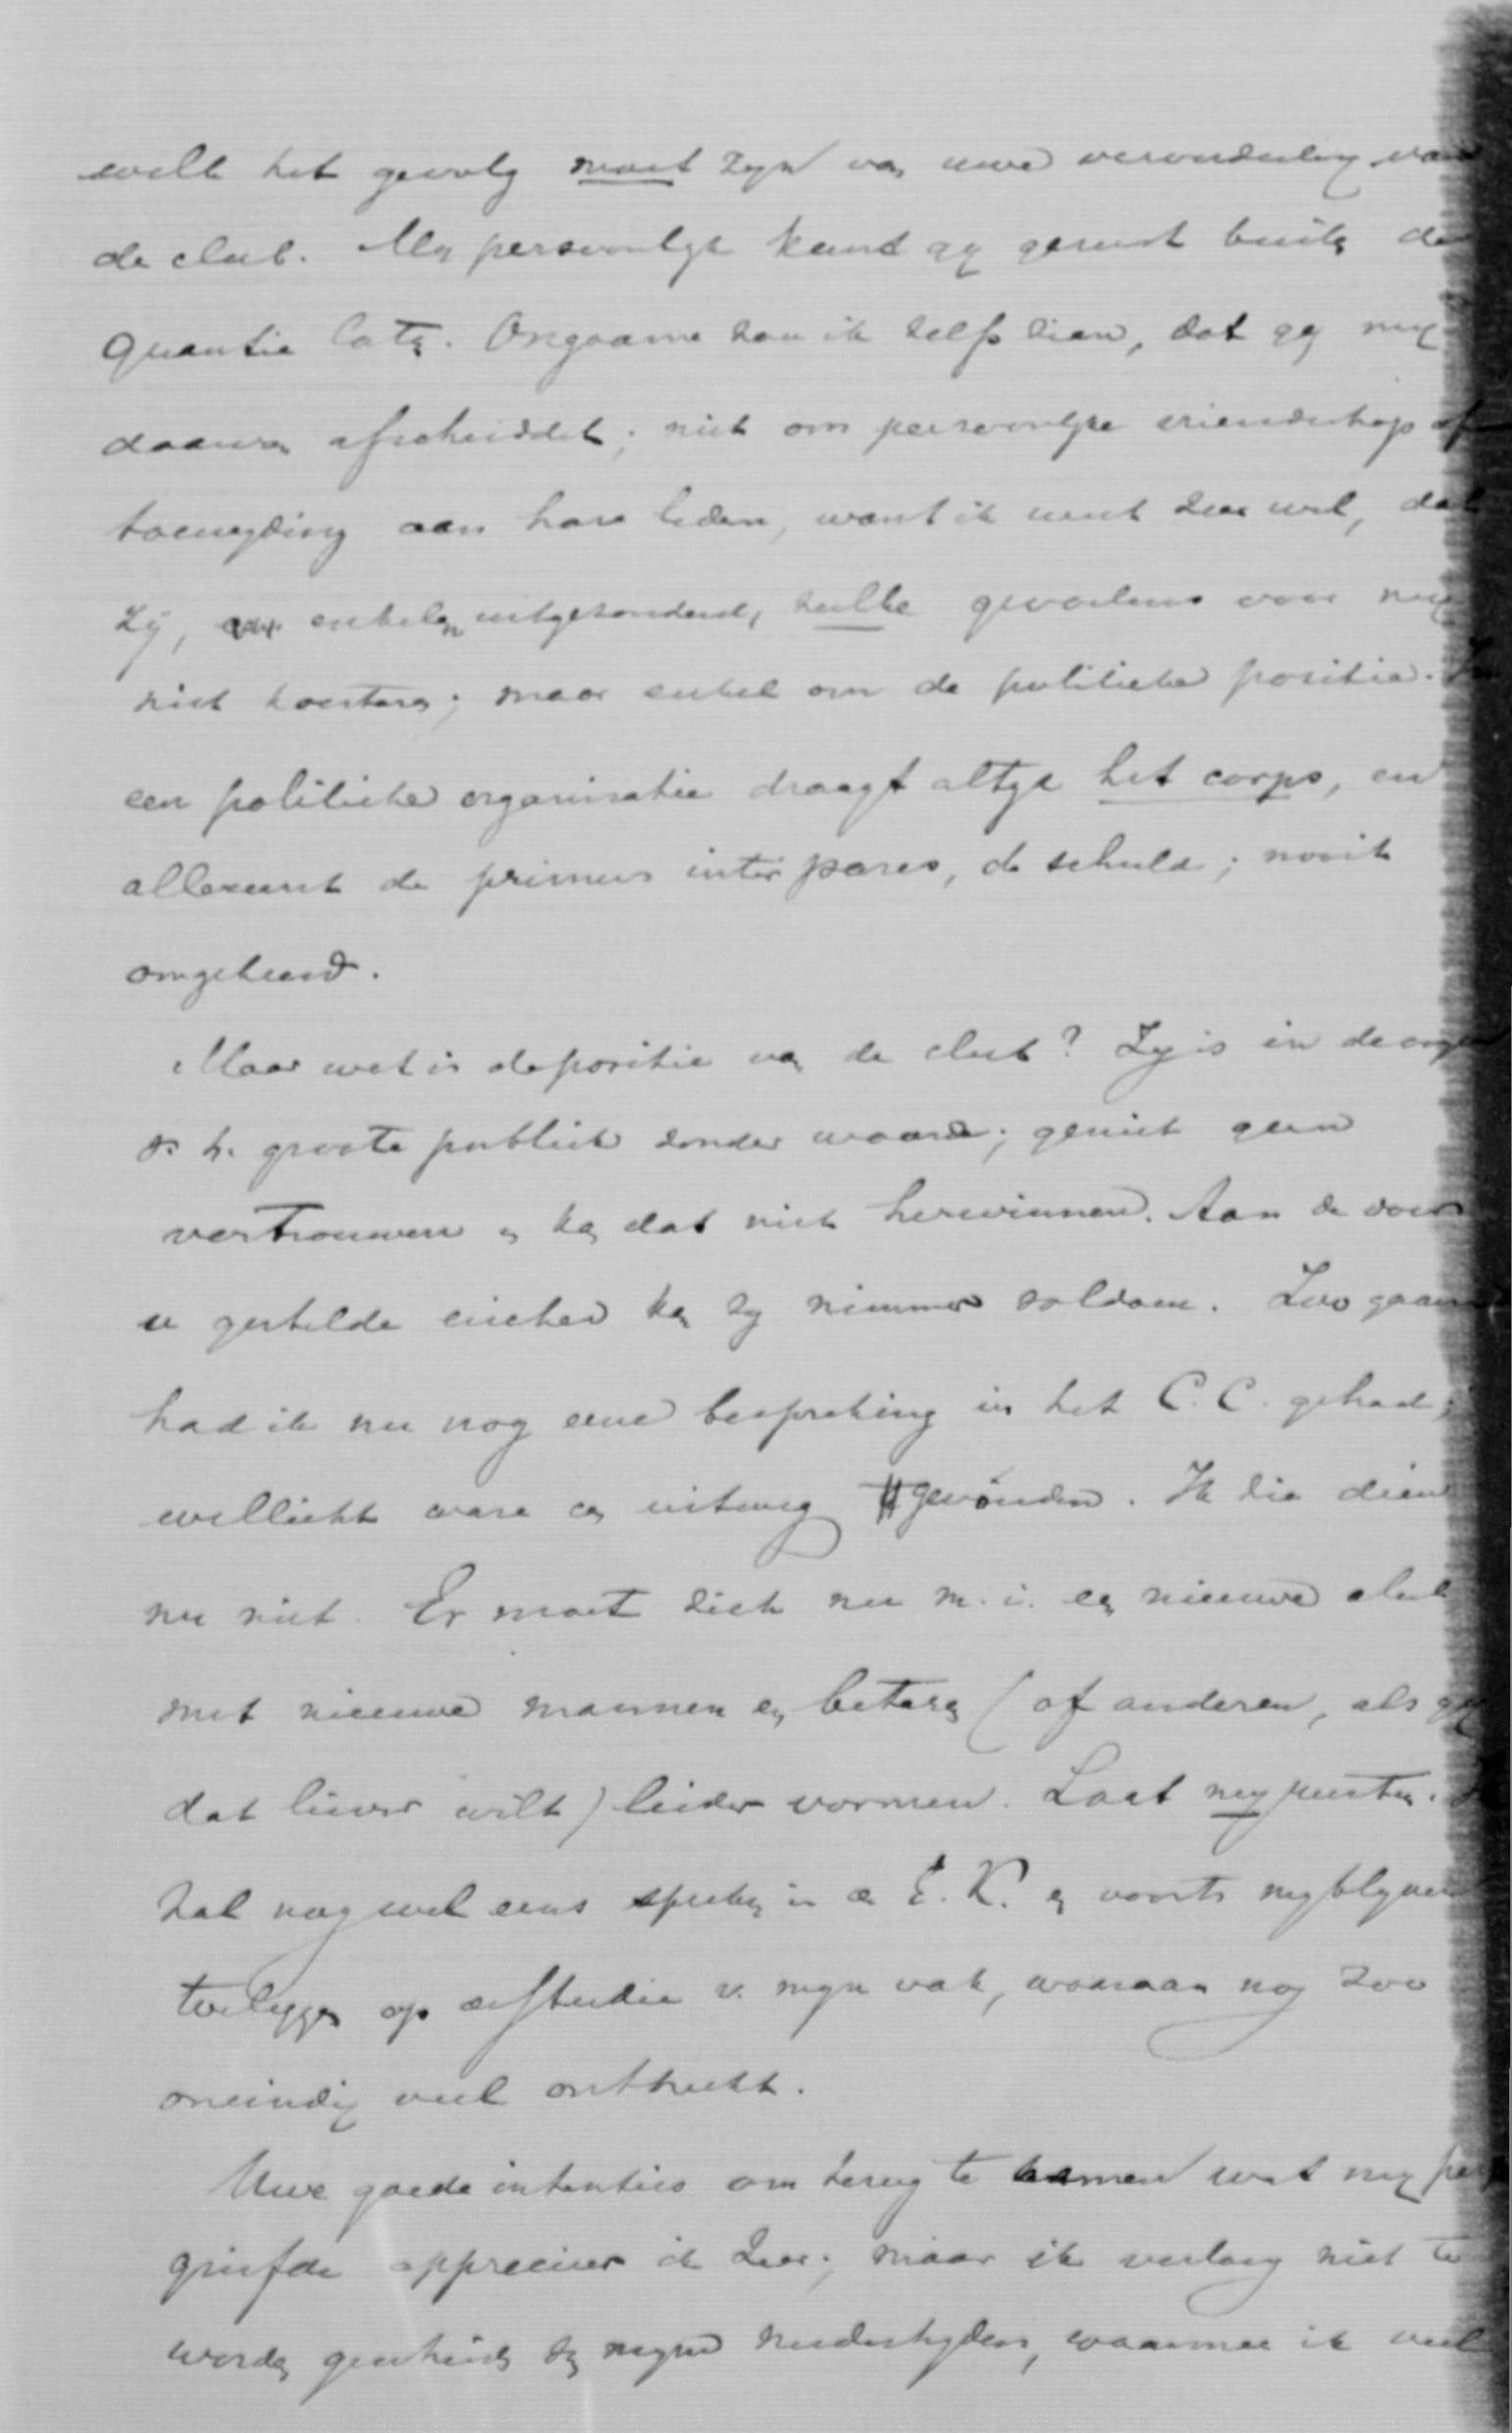 welk het gevolg moet zyn van uwe veroordeeling van
de club. My persoonlyk kunt gy gerust buiten de
quaestie laten. Ongaarne zou ik zelfs zien, dat gy my
daarvan afscheiddet; niet om persoonlyke vriendschap of
toeneyging aan hare leden, want ik weet zeer wel, dat
zy, enkelen uitgezonderd, zulke gevoelens voor my
niet koesteren; maar enkel om de politieke positie. In
een politieke organisatie draagt altyd het corps, en
allereerst de primus inter pares, de schuld; nooit
omgekeerd.
Maar wat is de positie van de club? Zy is in de oogen
v. h. groote publiek zonder waarde; geniet geen
vertrouwen en kan dat niet herwinnen. Aan de door
u gestelde eischen kan zy nimmer voldoen. Zoo gaarne
had ik nu nog eene bespreking in het C.C. gehad;
wellicht ware een uitweg gevonden. Ik zie dien
nu niet. Er moet zich nu m.i. een nieuwe club
met nieuwe mannen en betere (of anderen, als gy
dat liever wilt) leider vormen. Laat my rusten.
zal nog wel eens spreken in de E.K. en voorts my blyven
toeleggen op de studie v. myn vak, waaraan nog zoo
oneindig veel ontbreekt.
Uwe goede intenties om terug te nemen wat my
griefde apprecieer ik zeer; maar ik verlang niet te
worden gescheiden van myne medestryders, waarmee ik veel